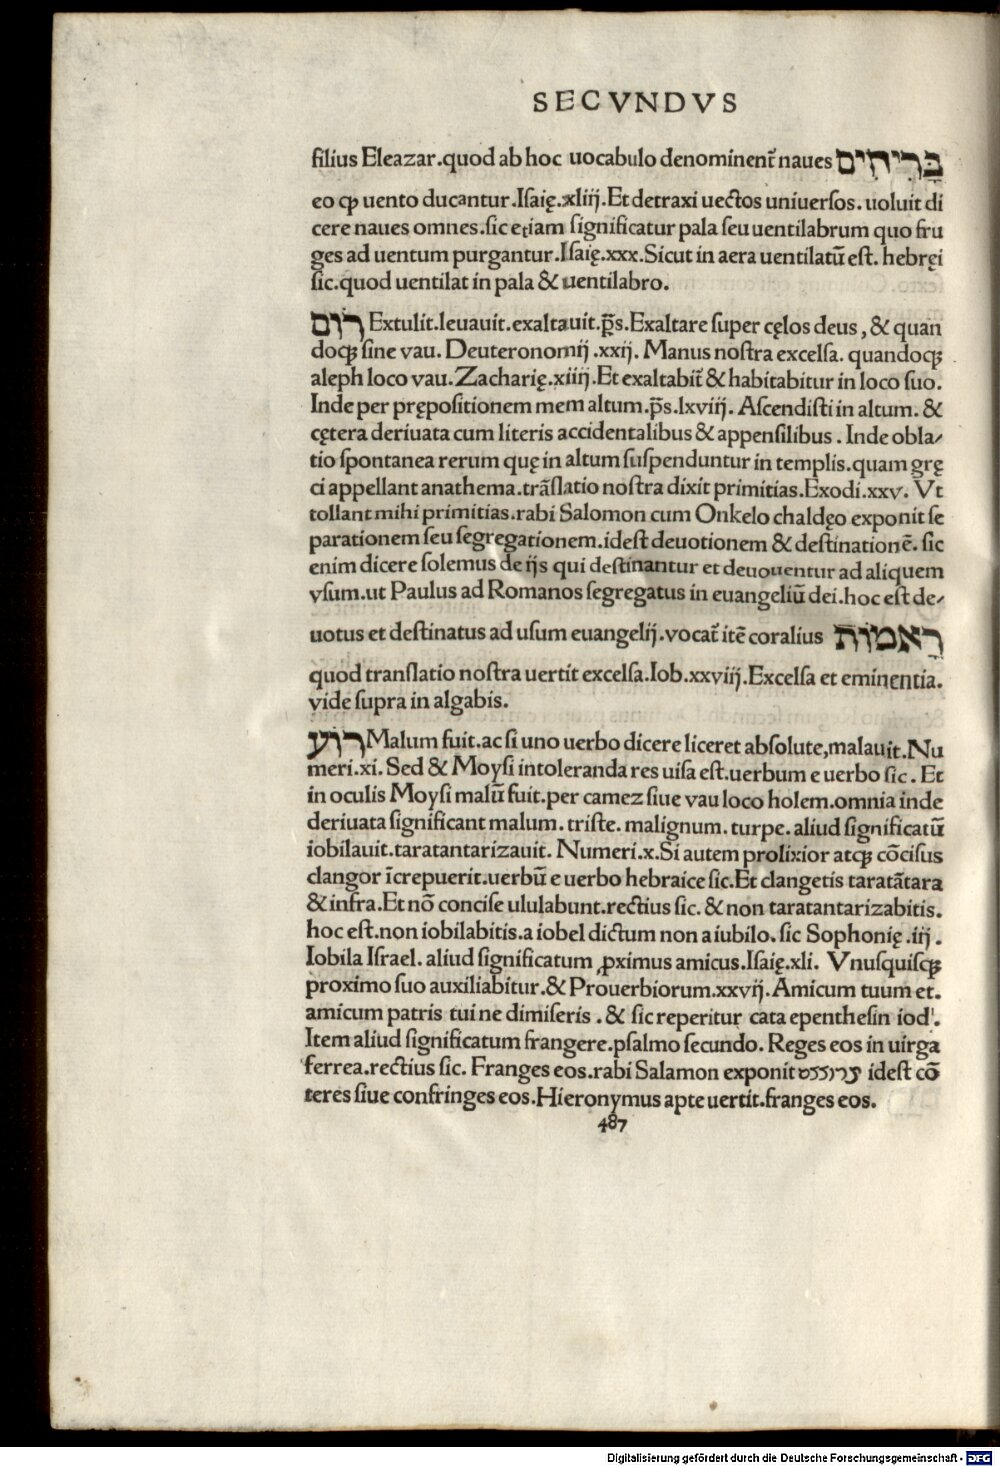 SECVNDVS
filius Eleazar.quod ab hoc uocabulo denominent᷑ naues בָּרִיחִים
eo ꝙ uento ducantur.Iſaię.xliij.Et detraxi uectos uniuerſos.uoluit di
cere naues omnes.ſic etiam ſignificatur pala ſeu uentilabrum quo fru
ges ad uentum purgantur.Iſaię.xxx.Sicut in aera uentilatū eſt. hebręi
ſic.quod uentilat in pala & uentilabro.
רוּם Extulit.leuauit.exaltauit.p̄s.Exaltare ſuper cęlos deus, & quan
doqꝫ ſine vau. Deuteronomij.xxij. Manus noſtra excelſa. quandoqꝫ
aleph loco vau. Zacharię.xiiij.Et exaltabit᷑ & habitabitur in loco ſuo.
Inde per prępoſitionem mem altum.p̄s.lxviij. Aſcendiſti in altum. &
cętera deriuata cum literis accidentalibus & appenſilibus. Inde obla⸗
tio ſpontanea rerum quę in altum ſuſpenduntur in templis.quam grę
ci appellant anathema.trāſlatio noſtra dixit primitias.Exodi.xxv. Vt
tollant mihi primitias.rabi Salomon cum Onkelo chaldęo exponit ſe
parationem ſeu ſegregationem.ideſt deuotionem & deſtinationē. ſic
enim dicere ſolemus de ijs qui deſtinantur et deuouentur ad aliquem
vſum.ut Paulus ad Romanos ſegregatus in euangeliū dei.hoc eſt de⸗
uotus et deſtinatus ad uſum euangelij.vocat᷑ itē coralius רָאמוֹת
quod tranſlatio noſtra uertit excelſa.Iob.xxviij.Excelſa et eminentia.
vide ſupra in algabis.
רוּע Malum fuit.ac ſi uno uerbo dicere liceret abſolute,malauit.Nu
meri.xi. Sed & Moyſi intoleranda res uiſa eſt.uerbum e uerbo ſic. Et
in oculis Moyſi malū fuit.per camez ſiue vau loco holem.omnia inde
deriuata ſignificant malum. triſte. malignum. turpe. aliud ſignificatū
iobilauit.taratantarizauit. Numeri.x.Si autem prolixior atqꝫ cōciſus
clangor īcrepuerit.uerbū e uerbo hebraice ſic.Et clangetis taratātara
& infra.Et nō conciſe ululabunt.rectius ſic. & non taratantarizabitis.
hoc eſt.non iobilabitis.a iobel dictum non a iubilo. ſic Sophonię.iij.
Iobila Iſrael. aliud ſignificatum ꝓximus amicus.Iſaię.xli. Vnuſquiſqꝫ
proximo ſuo auxiliabitur.& Prouerbiorum.xxvij.Amicum tuum et.
amicum patris tui ne dimiſeris. & ſic reperitur cata epentheſin iod.
Item aliud ſignificatum frangere.pſalmo ſecundo. Reges eos in uirga
ferrea.rectius ſic. Franges eos.rabi Salamon exponit ideſt cō
teres ſiue confringes eos.Hieronymus apte uertit.franges eos.
487
Digitalisierung gefördert durch die Deutsche Forschungsgemeinschaft - DFG